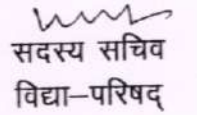 सदस्य सचिव
विद्या–परिषद्